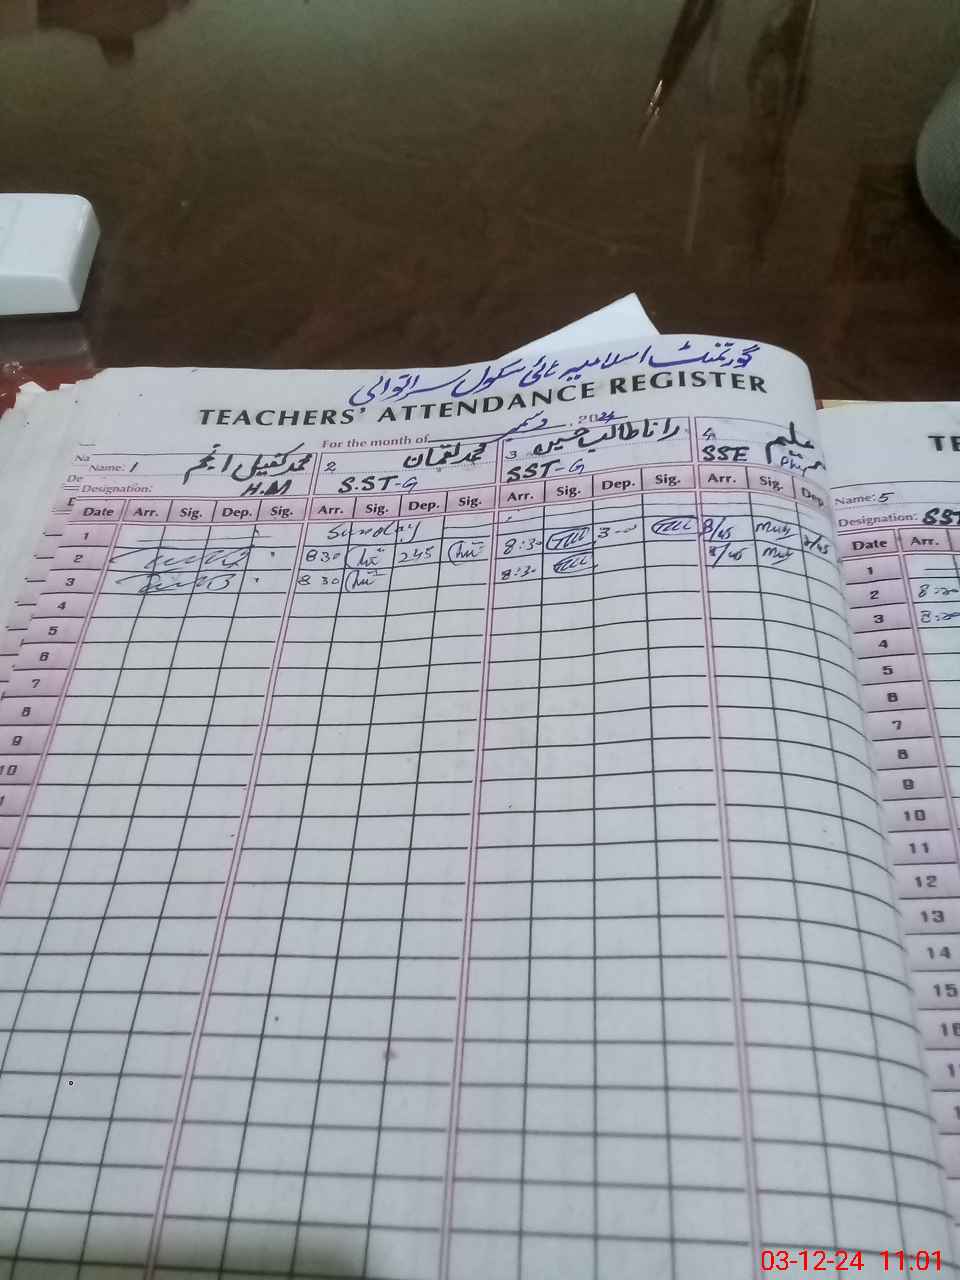 گورنمنٹ اسلامیہ ہائی سکول سراۃوالی
TEACHERS' ATTENDANCE REGISTER
For the month of دسمبر, 2024
Na
Name: 1 محمد کفیل انجم 2 محمد لقمان 3 رانا طالب حسین 4
De
Designation: H.M S.ST-G SST-G SSE Phy
Date Arr. Sig. Dep. Sig. Arr. Sig. Dep. Sig. Arr. Sig. Dep. Sig. Arr. Sig. Dep
1 Sunday
2 830 245 8:30 3-00 8/45
3 8 30 8:30 8/45
4
5
6
7
8
9
10
1
TE
Name: 5
Designation: SST
Date Arr.
1
2 8:30
3 8:30
4
5
6
7
8
9
10
11
12
13
14
15
16
1
03-12-24 11.01